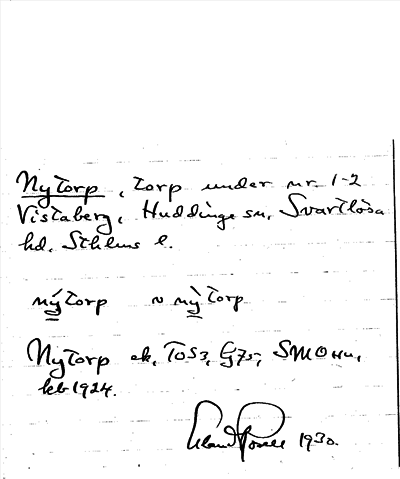 Nytorp, torp under nr. 1-2
Vistaberg, Huddinge sn, Svartlösa
hd. Sthlms l.
nýtorp ~ nỳtorp
Nytorp ek, ToS3, G75, SMOHu,
kb 1924.
1930.